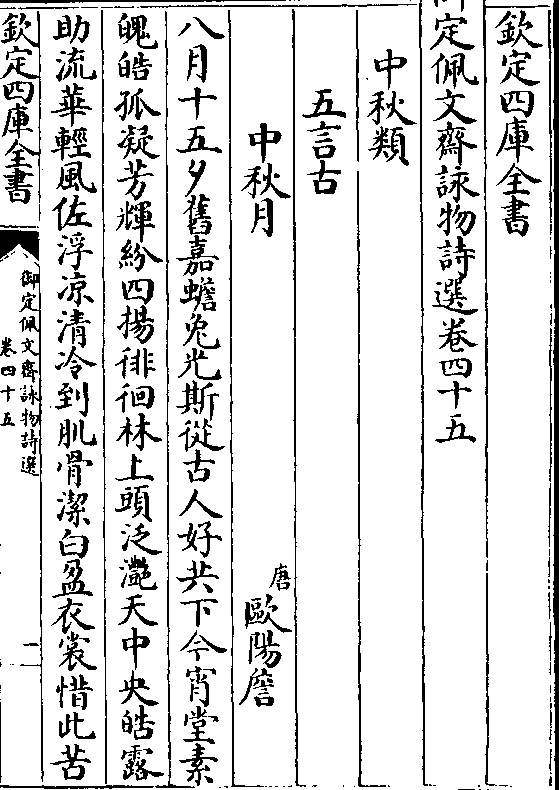 欽定四庫全書
御定佩文齋詠物詩選卷四十五
中秋類
五言古
中秋月
唐歐陽詹
八月十五夕舊嘉蟾兔光斯從古人好共下今宵堂素
魄皓孤凝芳輝紛四揚徘徊林上頭泛灔天中央皓露
助流華輕風佐浮凉清冷到肌骨潔白盈衣裳惜此苦
欽定四庫全書
御定佩文齋詠物詩選
卷四十五
一